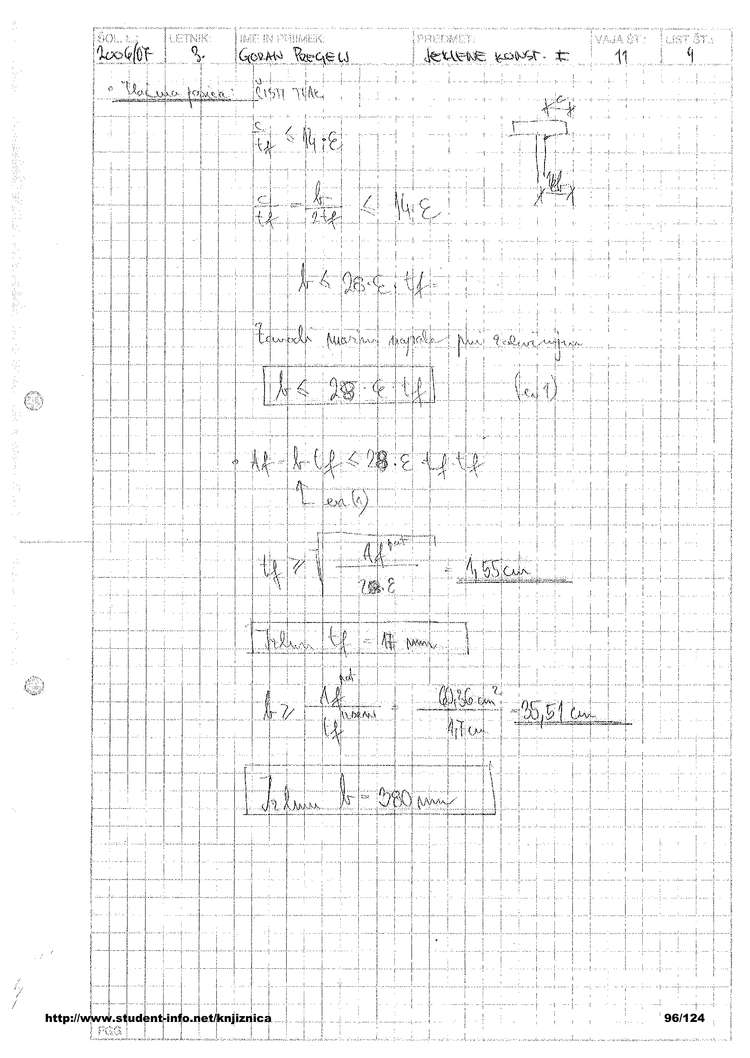 ŠOL. L.: LETNIK: IME IN PRIIMEK: PREDMET: VAJA ŠT.: LIST ŠT.:
2006/07 3. GORAN PREGELJ JEKLENE KONST. I 11 4
• Tlačna pasnica: ČISTI TLAK
c/tf ≤ 14·ε
c
c/tf = b/2tf ≤ 14·ε
b ≤ 28·ε·tf
Zaradi
pri
b ≤ 28·ε·tf (en 1)
• Af = b·tf ≤ 28·ε·tf·tf
↑ en (1)
tf ≥ √(Af^pot / 28·ε) = 1,55 cm
Izberem tf = 17 mm
b ≥ Af^pot / tf = 60,36 cm² / 1,7 cm = 35,51 cm
Izberem b = 380 mm
http://www.student-info.net/knjiznica 96/124
FGG